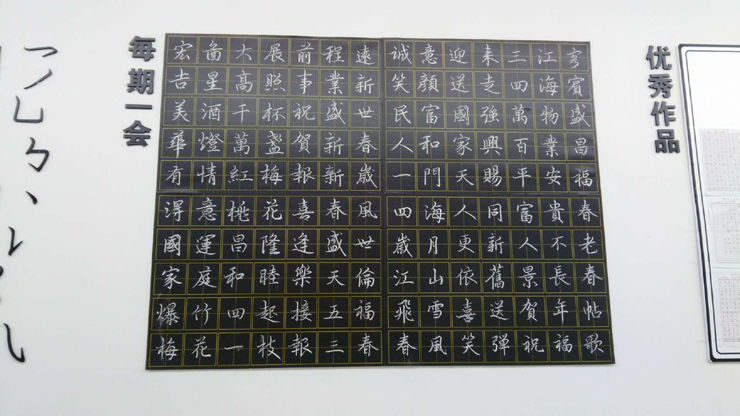 每期一会
宏啚大展前程遠
吉星高照事業新
美酒千杯祝盛世
華燈萬盞賀新春
有情紅梅報新歲
淂意桃花喜春風
國運昌隆逢盛世
家庭和睦樂天倫
爆竹四起接五福
梅花一枝報三春
誠意迎来三江客
笑顔送走四海賓
民富國強萬物盛
人和家興百業昌
一門天賜平安福
四海人同富貴春
歲月更新人不老
江山依舊景長春
飛雪喜送賀年帖
春風笑彈祝福歌
优秀作品